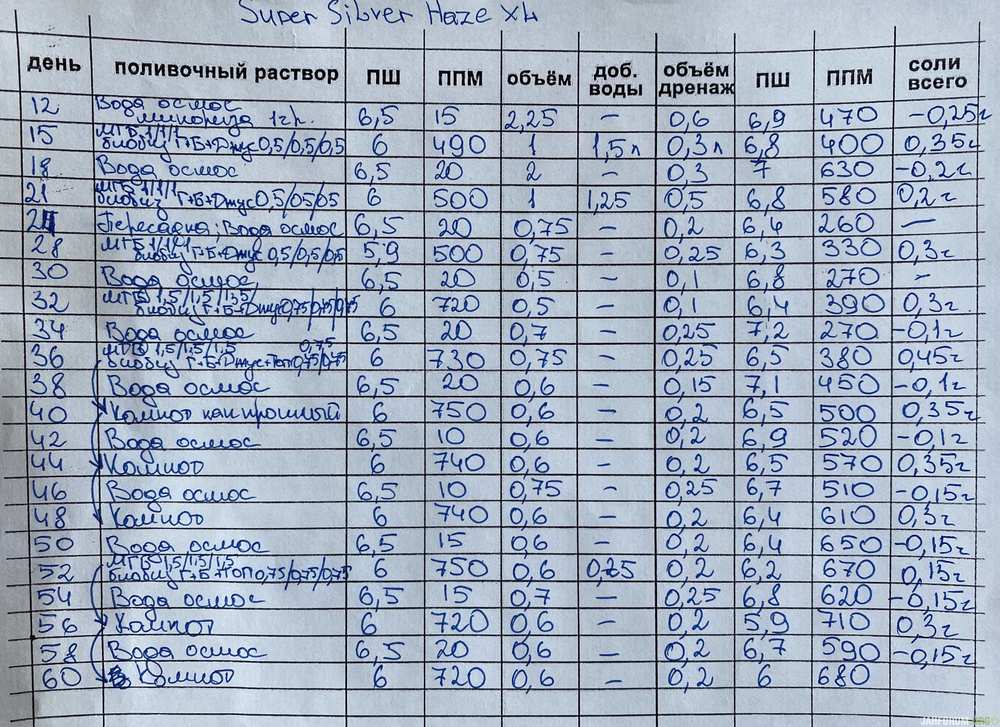 Super Silver Haze XL
день поливочный раствор ПШ ППМ объём доб. воды объём дренаж ПШ ППМ соли всего
12 Вода осмос 6,5 15 2,25 – 0,6 6,9 470 -0,25г
1гр.
15 МГБ 1/1/1 Г+Б+Джус 0,5/0,5/0,5 6 490 1 1,5л 0,3л 6,8 400 0,35г
18 Вода осмос 6,5 20 2 – 0,3 7 630 -0,2г
21 МГБ 1/1/1 Г+Б+Джус 0,5/0,5/0,5 6 500 1 1,25 0,5 6,8 580 0,2г
24 Пересадка; Вода осмос 6,5 20 0,75 – 0,2 6,4 260 –
28 МГБ 1/1/1 Г+Б+Джус 0,5/0,5/0,5 5,9 500 0,75 – 0,25 6,3 330 0,3г
30 Вода осмос 6,5 20 0,5 – 0,1 6,8 270 –
32 МГБ 1,5/1,5/1,5 Г+Б+Джус 0,75/0,75/0,75 6 720 0,5 – 0,1 6,4 390 0,3г
34 Вода осмос 6,5 20 0,7 – 0,25 7,2 270 -0,1г
36 МГБ 1,5/1,5/1,5 Г+Б+Джус+Топ 0,75/0,75 0,75 6 730 0,75 – 0,25 6,5 380 0,45г
38 Вода осмос 6,5 20 0,6 – 0,15 7,1 450 -0,1г
40 Компот как прошлый 6 750 0,6 – 0,2 6,5 500 0,35г
42 Вода осмос 6,5 10 0,6 – 0,2 6,9 520 -0,1г
44 Компот 6 740 0,6 – 0,2 6,5 570 0,35г
46 Вода осмос 6,5 10 0,75 – 0,25 6,7 510 -0,15г
48 Компот 6 740 0,6 – 0,2 6,4 610 0,3г
50 Вода осмос 6,5 15 0,6 – 0,2 6,4 650 -0,15г
52 МГБ 1,5/1,5/1,5 Г+Б+Топ 0,75/0,75/0,75 6 750 0,6 0,25 0,2 6,2 670 0,15г
54 Вода осмос 6,5 15 0,7 – 0,25 6,8 620 -0,15г
56 Компот 6 720 0,6 – 0,2 5,9 710 0,3г
58 Вода осмос 6,5 20 0,6 – 0,2 6,7 590 -0,15г
60 Компот 6 720 0,6 – 0,2 6 680